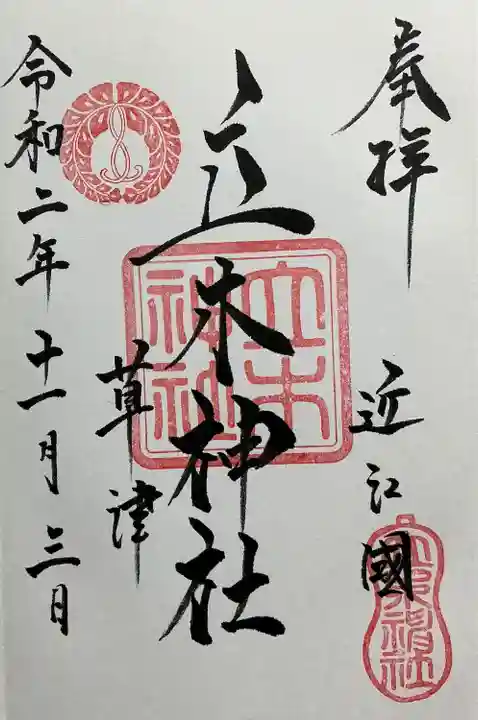 奉拝
近江國
立木神社
立木
神社
草津
令和二年十一月三日